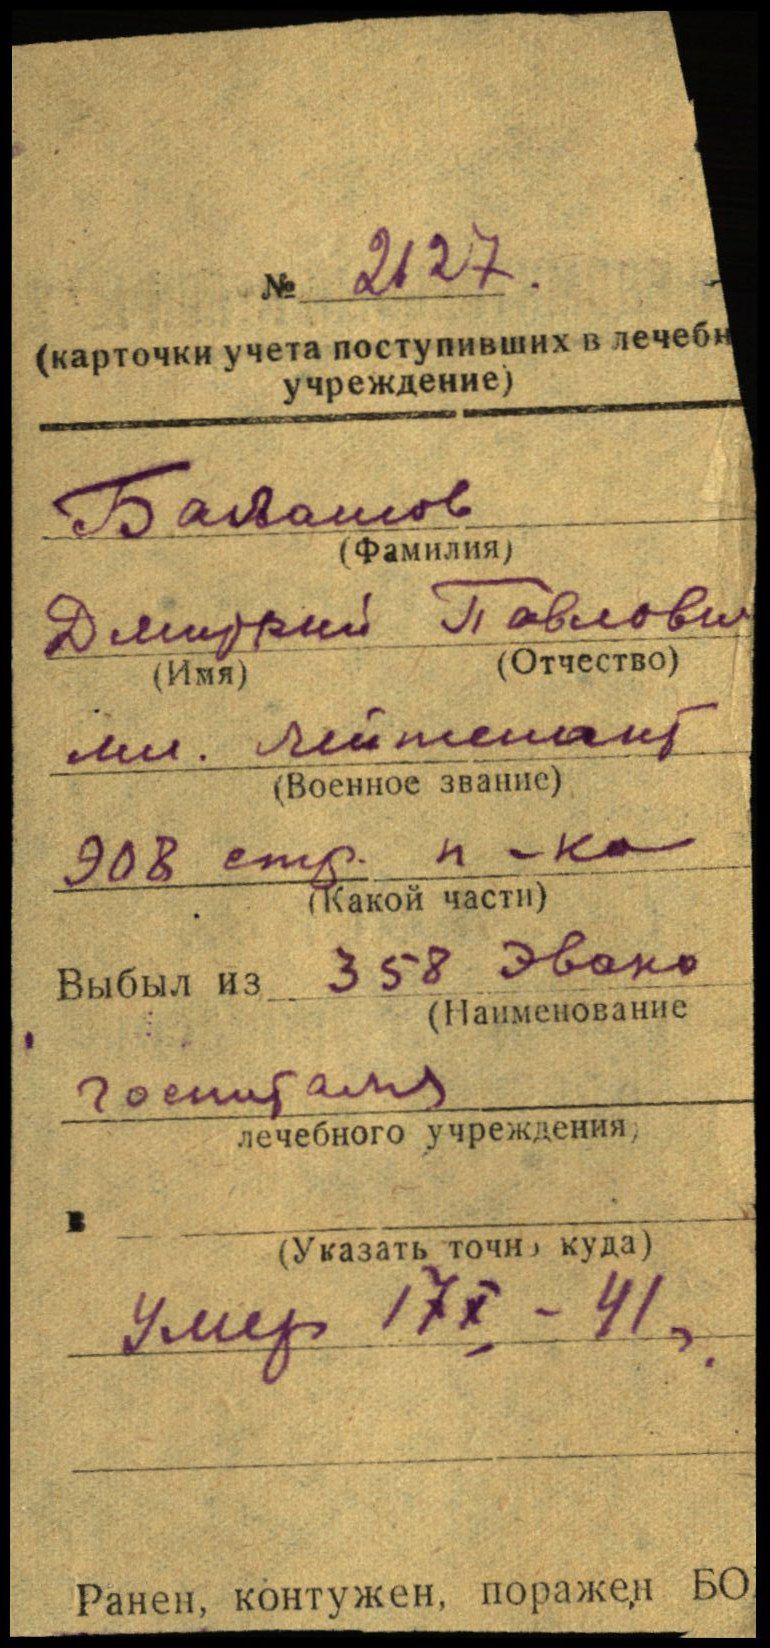 № 2127.
(карточки учета поступивших в лечебн
учреждение)
Балашов
(Фамилия)
Дмитрий Павлович
(Имя) (Отчество)
мл. лейтенант
(Военное звание)
908 стр. п-ка
(Какой части)
Выбыл из 358 Эвако
(Наименование
госпиталя
лечебного учреждения)
в
(Указать точно куда)
Умер 17 X - 41 г.
Ранен, контужен, поражен БО